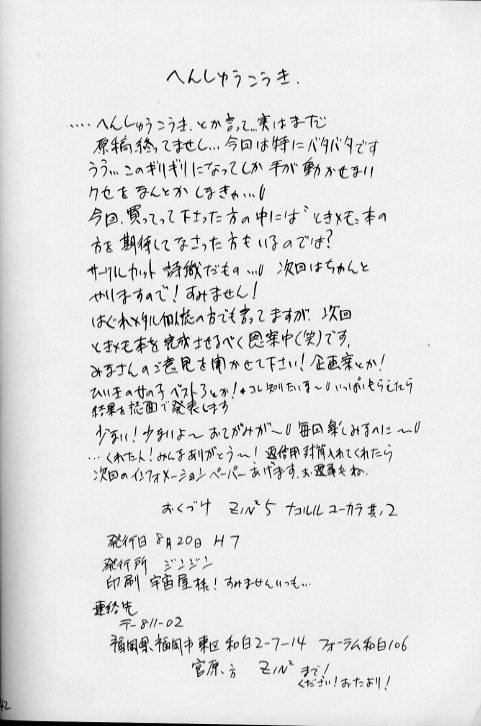 へんしゅうこうき.
‥‥へんしゅうこうき、とか言って…実はまだ
原稿終ってませし…今回は特にバタバタです
うう…このギリギリになってしか手が動かせない
クセをなんとかしなきゃ…
今回、買ってって下さった方の中には"ときメモ"本の
方を期待してなさった方もいるのでは?
サークルカット詩織だもの… 次回はちゃんと
やりますので!すみません!
はぐれメタルの方でも言ってますが、次回
ときメモ本を完成させるべく思案中(笑)です。
みなさんのご意見を聞かせて下さい!企画案とか!
ひいきの女の子ベスト3とか!←コレ知りたいな〜いっぱいもらえたら
結果を誌面で発表します
少ない!少ないよ〜おてがみが〜毎回楽しみなのに〜
…くれた人!みんなありがとう〜!返信用封筒入れてくれたら
次回のインフォメーションペーパーあげます。お返事もね。
おくづけ ZIN² 5 ナコルル ユーカラ其ノ2
発行日 8月20日 H7
発行所 ジンジン
印刷 宇宙屋様!すみませんいつも…
連絡先
〒811-02
福岡県、福岡市東区 和白2-7-14 フォーラム和白106
宮原、方 ZIN² まで!
ください!おたより!
42